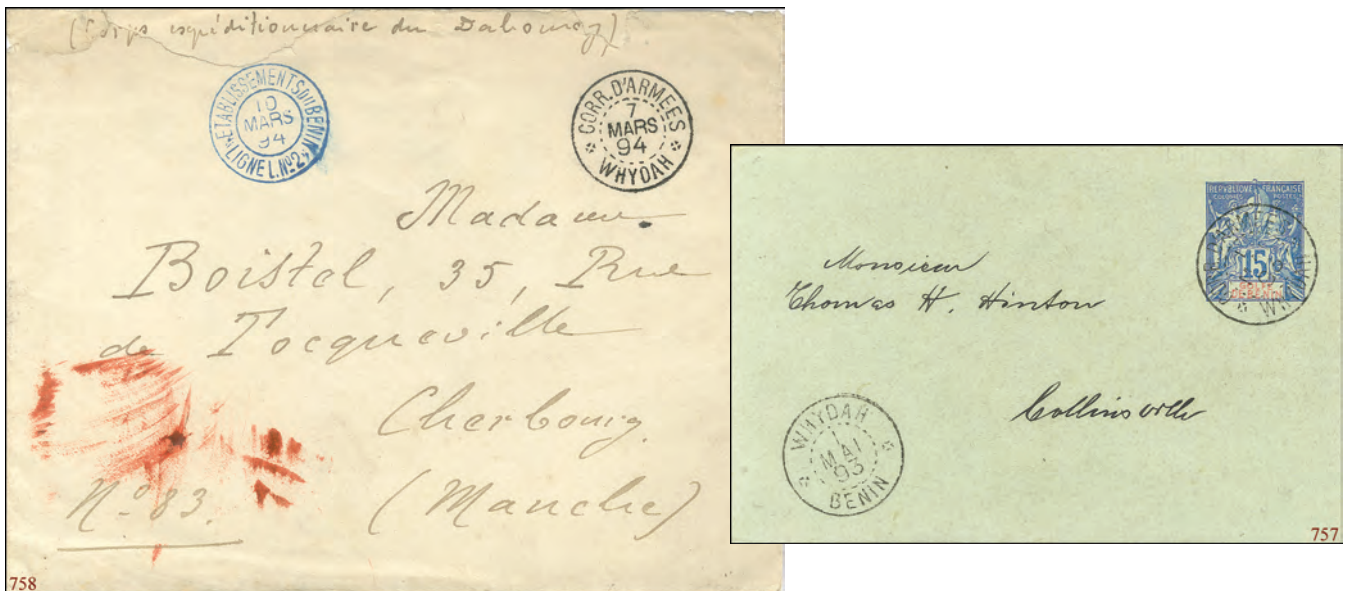 (Corps expéditionnaire du Dahomey)
ETABLISSEMENTS DU BENIN
10
MARS
94
LIGNE L. Nº2
CORR. D'ARMEES
7
MARS
94
WHYDAH
Madame
Boistel, 35, Rue
de Tocqueville
Cherbourg.
(Manche)
Nº 83.
758
REPUBLIQUE FRANÇAISE
COLONIES POSTES
15
GOLFE
DE BENIN
CORR. D'ARMEES
WHYDAH
Monsieur
Thomas H. Hinton
Collinsville
WHYDAH
1
MAI
93
BENIN
757